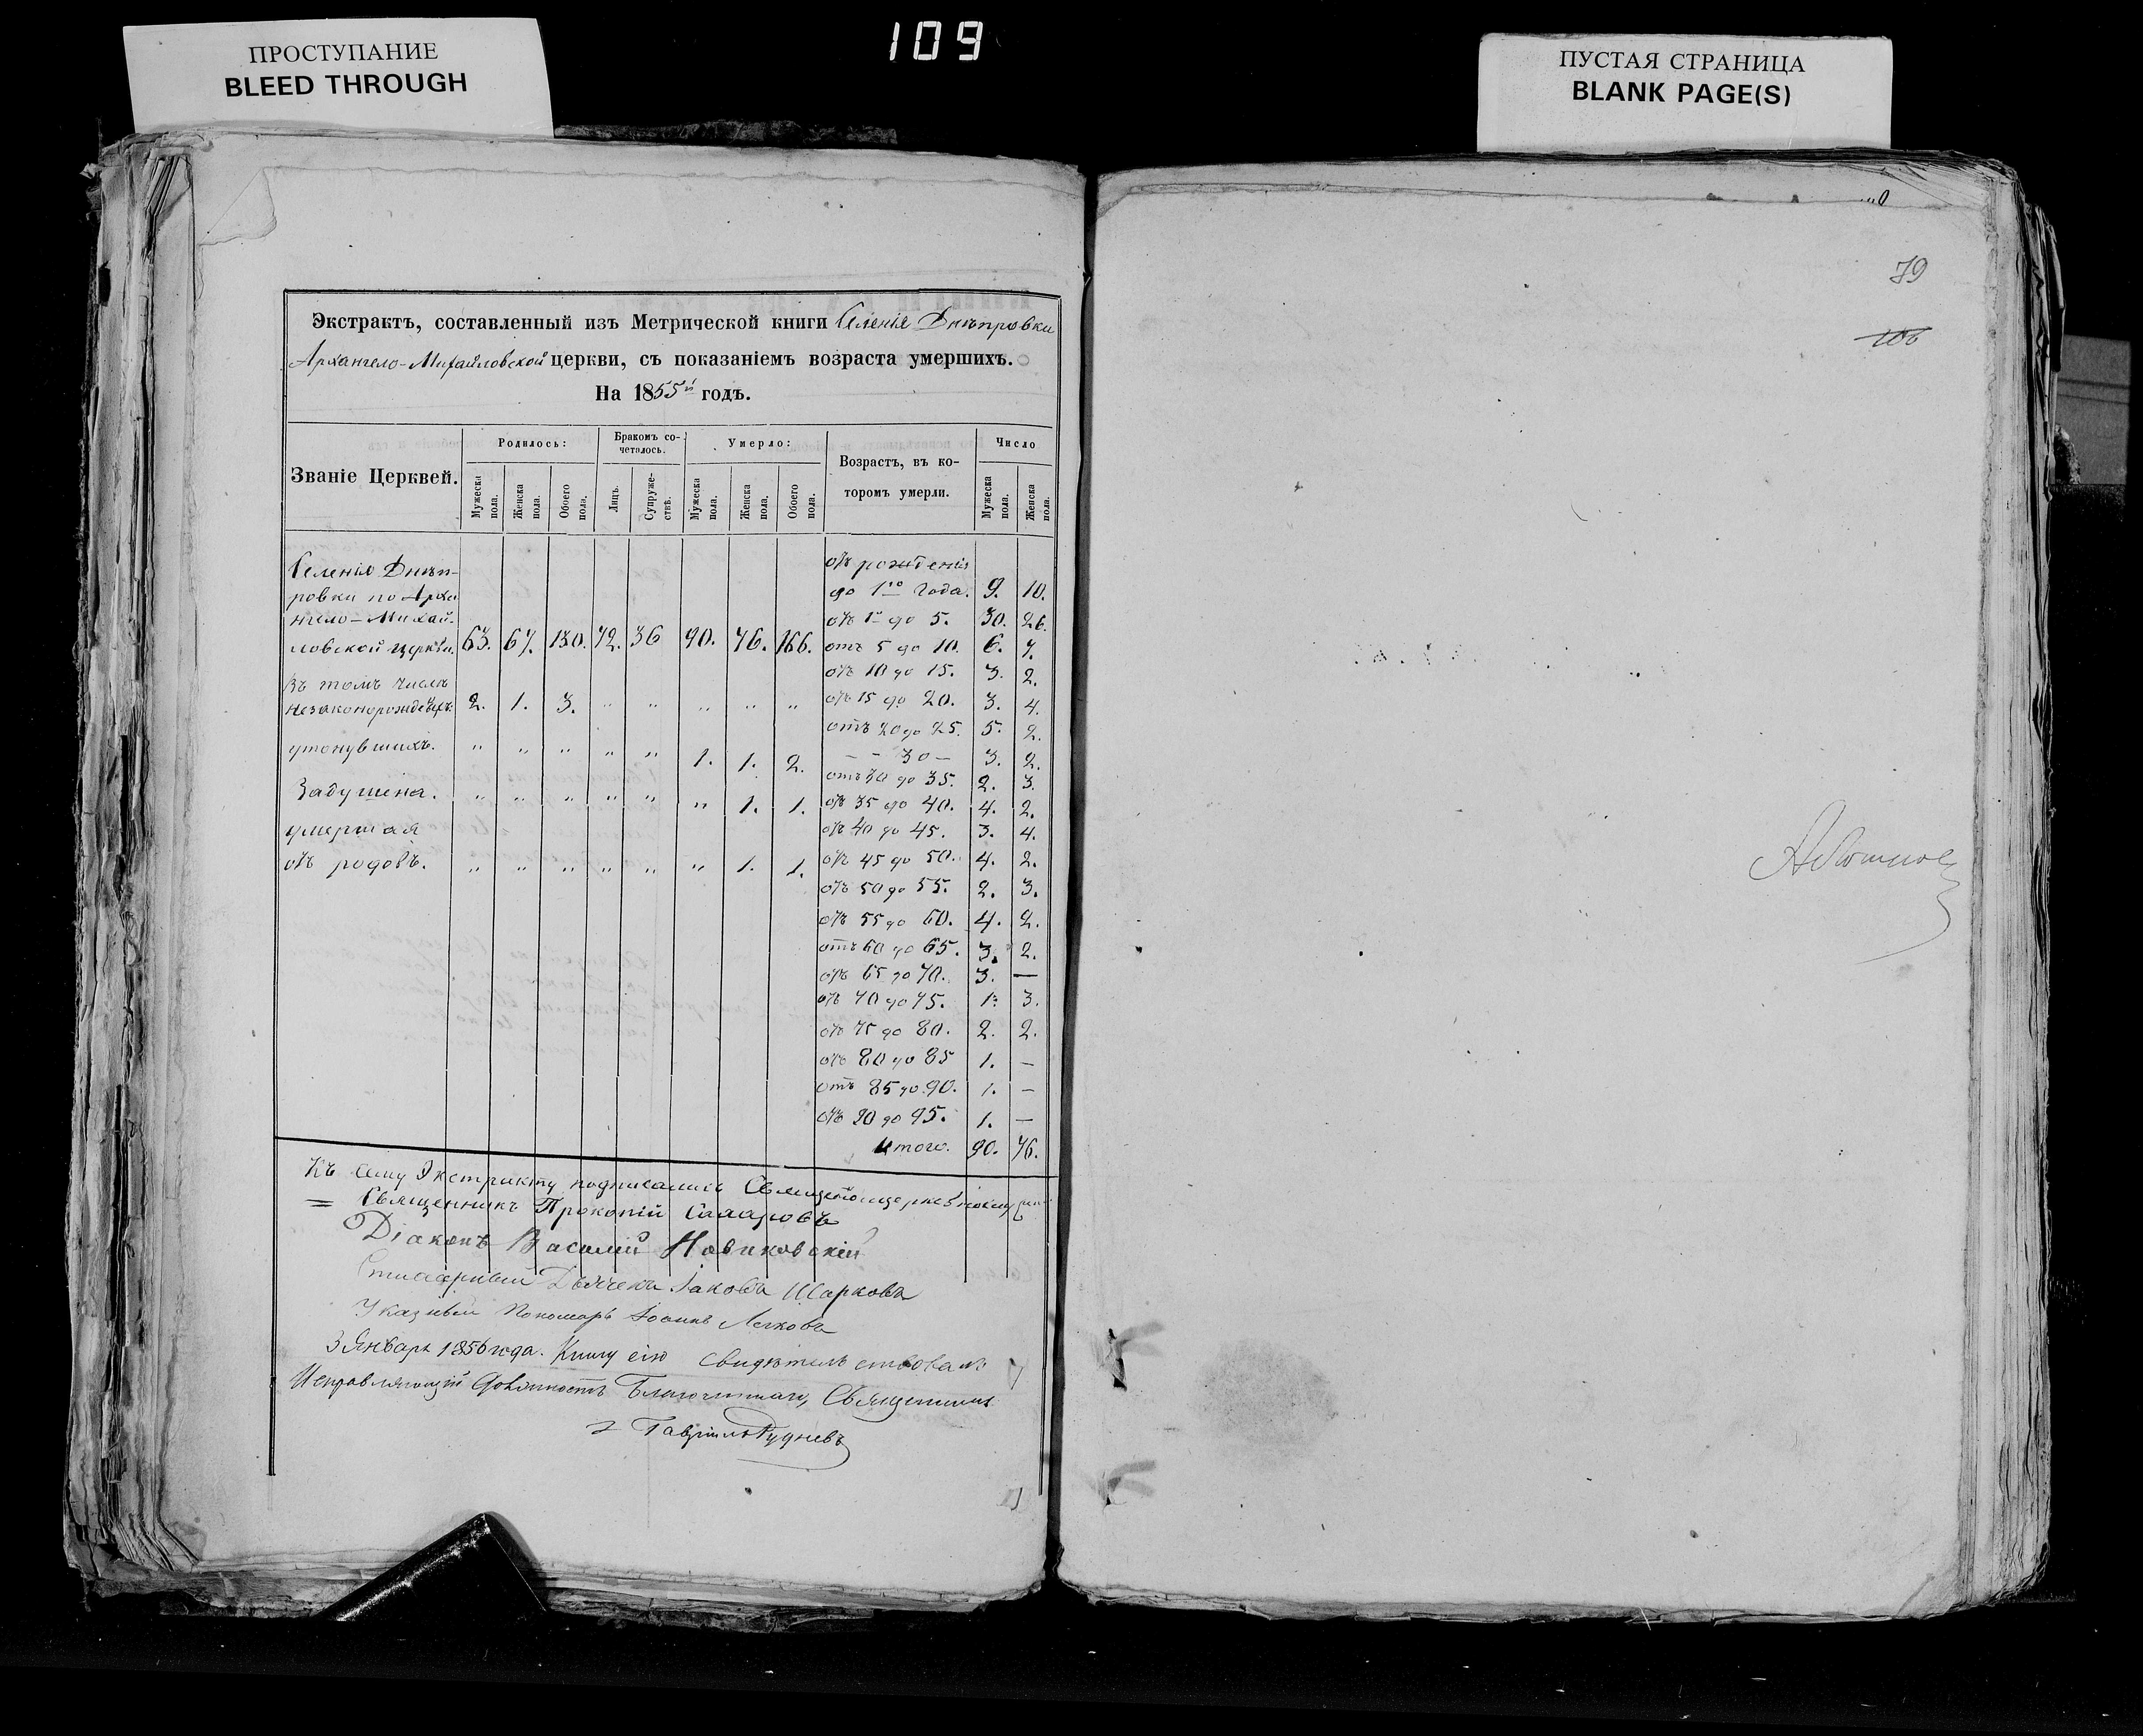 ПРОСТУПАНИЕ
BLEED THROUGH
109
ПУСТАЯ СТРАНИЦА
BLANK PAGE(S)
Экстрактъ, составленный изъ Метрической книги Селенія Днѣпровки
Архангело-Михайловской церкви, съ показаніемъ возраста умершихъ.
На 1855й годъ.
Званіе Церквей.
Родилось:
Бракомъ со-
четалось.
Умерло:
Возрастъ, въ ко-
торомъ умерли.
Число
Мужеска пола.
Женска пола.
Обоего пола.
Лицъ.
Супруже-
ствъ.
Мужеска пола.
Женска пола.
Обоего пола.
Мужеска пола.
Женска пола.
Селенія Днѣп-
ровки по Арха
нгело-Михай-
ловской церкви. 63. 67. 130. 72. 36 90. 76. 166.
Въ томъ числѣ
незаконорожден. 2. 1. 3. „ „ „ „ „
утонувшихъ. „ „ „ „ „ 1. 1. 2.
Задушена. „ „ „ „ „ „ 1. 1.
умершая
отъ родовъ. „ „ „ „ „ „ 1. 1.
отъ рожденія
до 1го года. 9. 10.
отъ 1 до 5. 30. 26.
отъ 5 до 10. 6. 7.
отъ 10 до 15. 3. 2.
отъ 15 до 20. 3. 4.
отъ 20 до 25. 5. 2.
– – 30 – 3. 2.
отъ 30 до 35. 2. 3.
отъ 35 до 40. 4. 2.
отъ 40 до 45. 3. 4.
отъ 45 до 50. 4. 2.
отъ 50 до 55. 2. 3.
отъ 55 до 60. 4. 2.
отъ 60 до 65. 3. 2.
отъ 65 до 70. 3. —
отъ 70 до 75. 1. 3.
отъ 75 до 80. 2. 2.
отъ 80 до 85 1. –
отъ 85 до 90. 1. –
отъ 90 до 95. 1. –
Итого. 90. 76.
Къ сему Экстракту подписались
Священникъ Прокопій
Діаконъ Василій Новиковскій
Дьячекъ Іаковъ Шарковъ
Указный Пономарь Іоаннъ
3 Январь 1856 года. Книгу сію свидѣтельствовалъ
Исправляющій Должность Благочиннаго, Священникъ
Гавріилъ Рудневъ
79
106